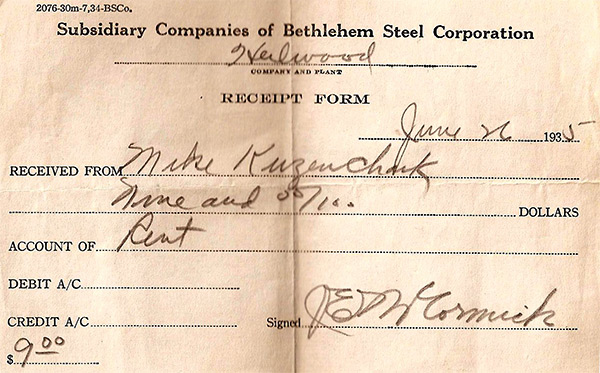 2076-30m-7,34-BSCo.
Subsidiary Companies of Bethlehem Steel Corporation
Heilwood
COMPANY AND PLANT
RECEIPT FORM
June 26 1935
RECEIVED FROM Mike Kuzenchark
Nine and 00/100 DOLLARS
ACCOUNT OF Rent
DEBIT A/C
CREDIT A/C Signed J E McCormick
$ 9 00